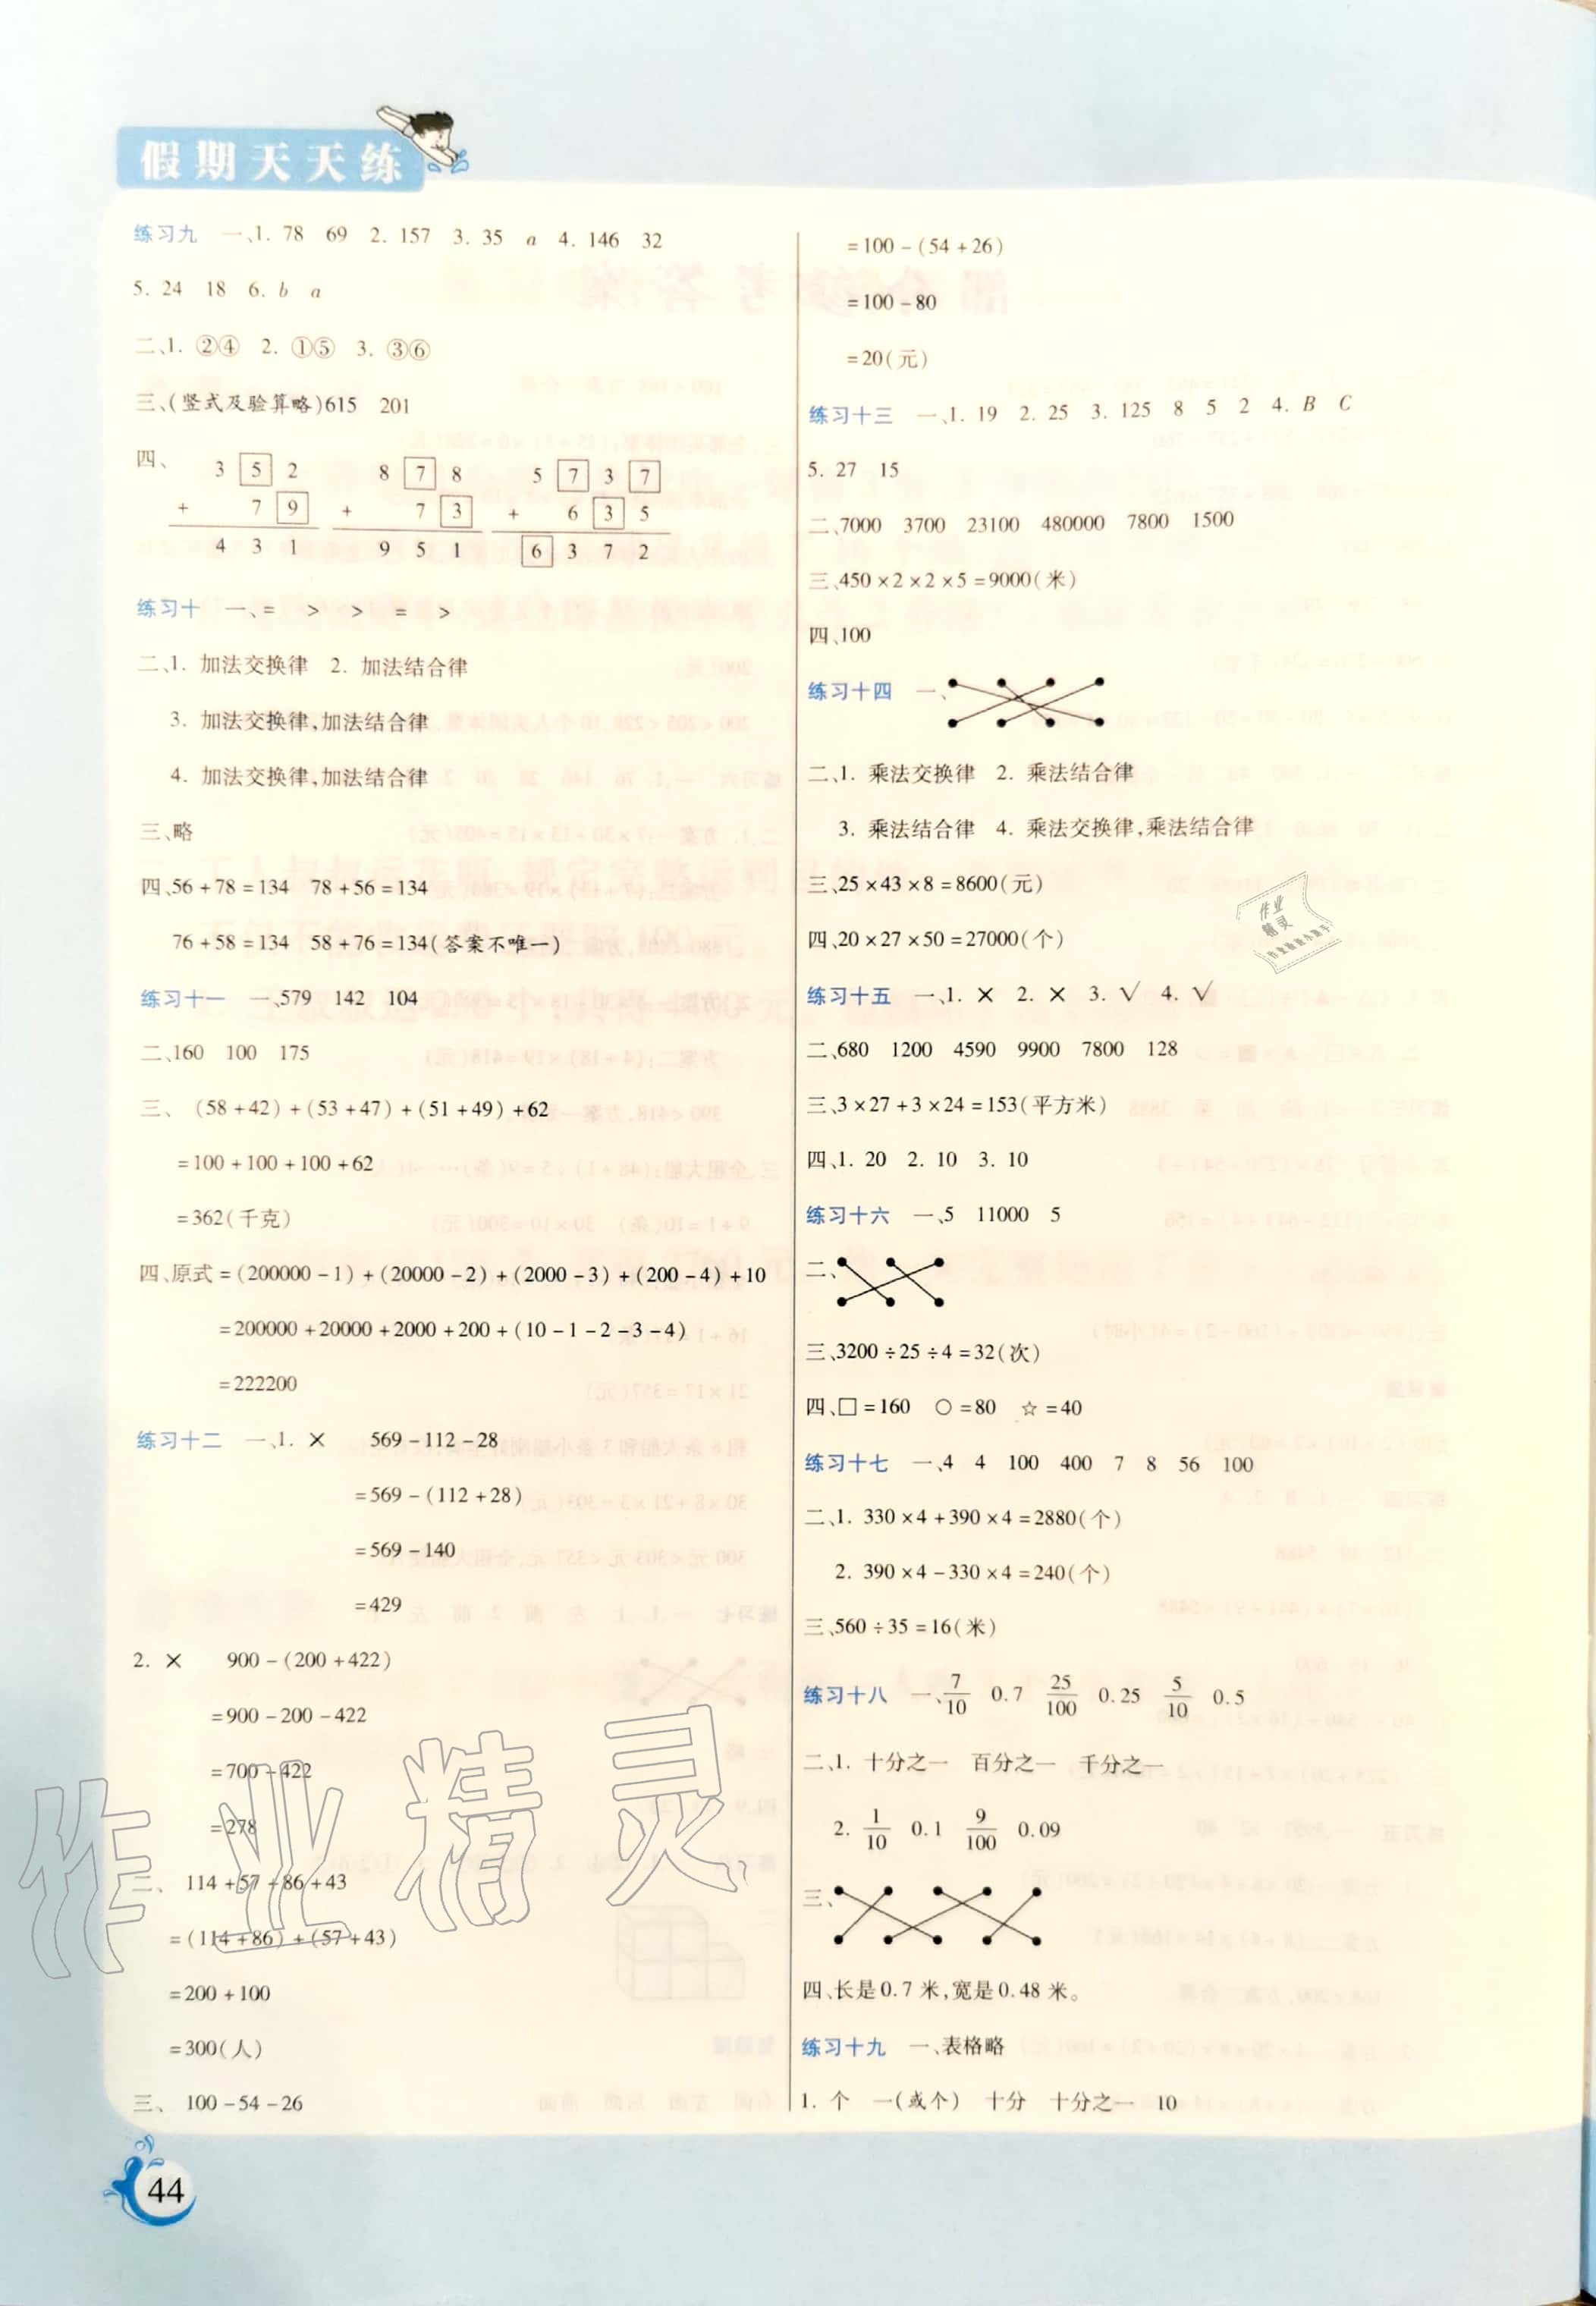 假期天天练
练习九 一、1. 78 69 2. 157 3. 35 a 4. 146 32
5. 24 18 6. b a
二、1. ②④ 2. ①⑤ 3. ③⑥
三、(竖式及验算略)615 201
四、
3 5 2 8 7 8 5 7 3 7
+ 7 9 + 7 3 + 6 3 5
4 3 1 9 5 1 6 3 7 2
练习十 一、= > > = >
二、1. 加法交换律 2. 加法结合律
3. 加法交换律,加法结合律
4. 加法交换律,加法结合律
三、略
四、56+78=134 78+56=134
76+58=134 58+76=134(答案不唯一)
练习十一 一、579 142 104
二、160 100 175
三、 (58+42)+(53+47)+(51+49)+62
=100+100+100+62
=362(千克)
四、原式=(200000-1)+(20000-2)+(2000-3)+(200-4)+10
=200000+20000+2000+200+(10-1-2-3-4)
=222200
练习十二 一、1. × 569-112-28
=569-(112+28)
=569-140
=429
2. × 900-(200+422)
=900-200-422
=700-422
=278
二、 114+57+86+43
=(114+86)+(57+43)
=200+100
=300(人)
三、 100-54-26
=100-(54+26)
=100-80
=20(元)
练习十三 一、1. 19 2. 25 3. 125 8 5 2 4. B C
5. 27 15
二、7000 3700 23100 480000 7800 1500
三、450×2×2×5=9000(米)
四、100
练习十四 一、
二、1. 乘法交换律 2. 乘法结合律
3. 乘法结合律 4. 乘法交换律,乘法结合律
三、25×43×8=8600(元)
四、20×27×50=27000(个)
练习十五 一、1. × 2. × 3. √ 4. √
二、680 1200 4590 9900 7800 128
三、3×27+3×24=153(平方米)
四、1. 20 2. 10 3. 10
练习十六 一、5 11000 5
二、
三、3200÷25÷4=32(次)
四、□=160 ○=80 ☆=40
练习十七 一、4 4 100 400 7 8 56 100
二、1. 330×4+390×4=2880(个)
2. 390×4-330×4=240(个)
三、560÷35=16(米)
练习十八 一、7/10 0.7 25/100 0.25 5/10 0.5
二、1. 十分之一 百分之一 千分之一
2. 1/10 0.1 9/100 0.09
三、
四、长是0.7米,宽是0.48米。
练习十九 一、表格略
1. 个 一(或个) 十分 十分之一 10
44
作业精灵
作业
精灵